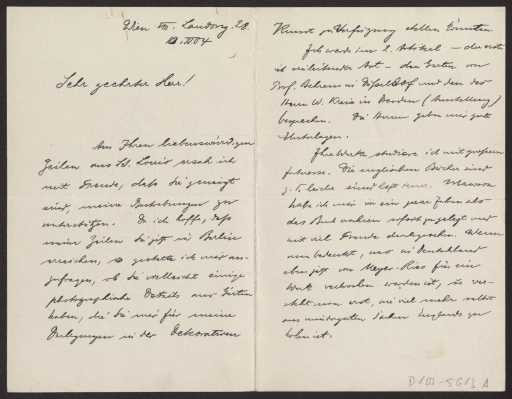 Wien VII. Landong. 28.
Sehr geehrter Herr!
Aus Ihren liebenswürdigen
Zeilen aus St. Louis ersah ich
mit Freude, daß Sie geneigt
sind, meine Bestrebungen zu
unterstützen. Da ich hoffe, daß
meine Zeilen Sie jetzt in Berlin
erreichen, so gestatte ich mir an-
zufragen, ob Sie vielleicht einige
photographische Details aus Gärten
haben, die Sie mir für meine
Darlegungen in der Dekorativen
Kunst zur Verfügung stellen könnten
Ich werde im 2. Artikel – der erste
ist einleitender Art – den Garten von
Prof. Behrens in Düsseldorf und den des
Herrn W. Kreis in Dresden (Ausstellung)
besprechen. Die Herren geben mir gute
Unterlagen.
Ihre Werke studiere ich mit großem
Interesse. Die englischen Bücher sind
z. T. leider
habe ich mir vor ein paar Jahren als
das Buch erschien sofort zugelegt und
mit viel Freude durchgesehen. Wenn
man bedenkt, was in Deutschland
eben jetzt von Meyer-Ries für ein
Werk verbrochen worden ist, so ver-
steht man erst, wie viel mehr selbst
aus niedrigsten Sachen Englands zu
holen ist.